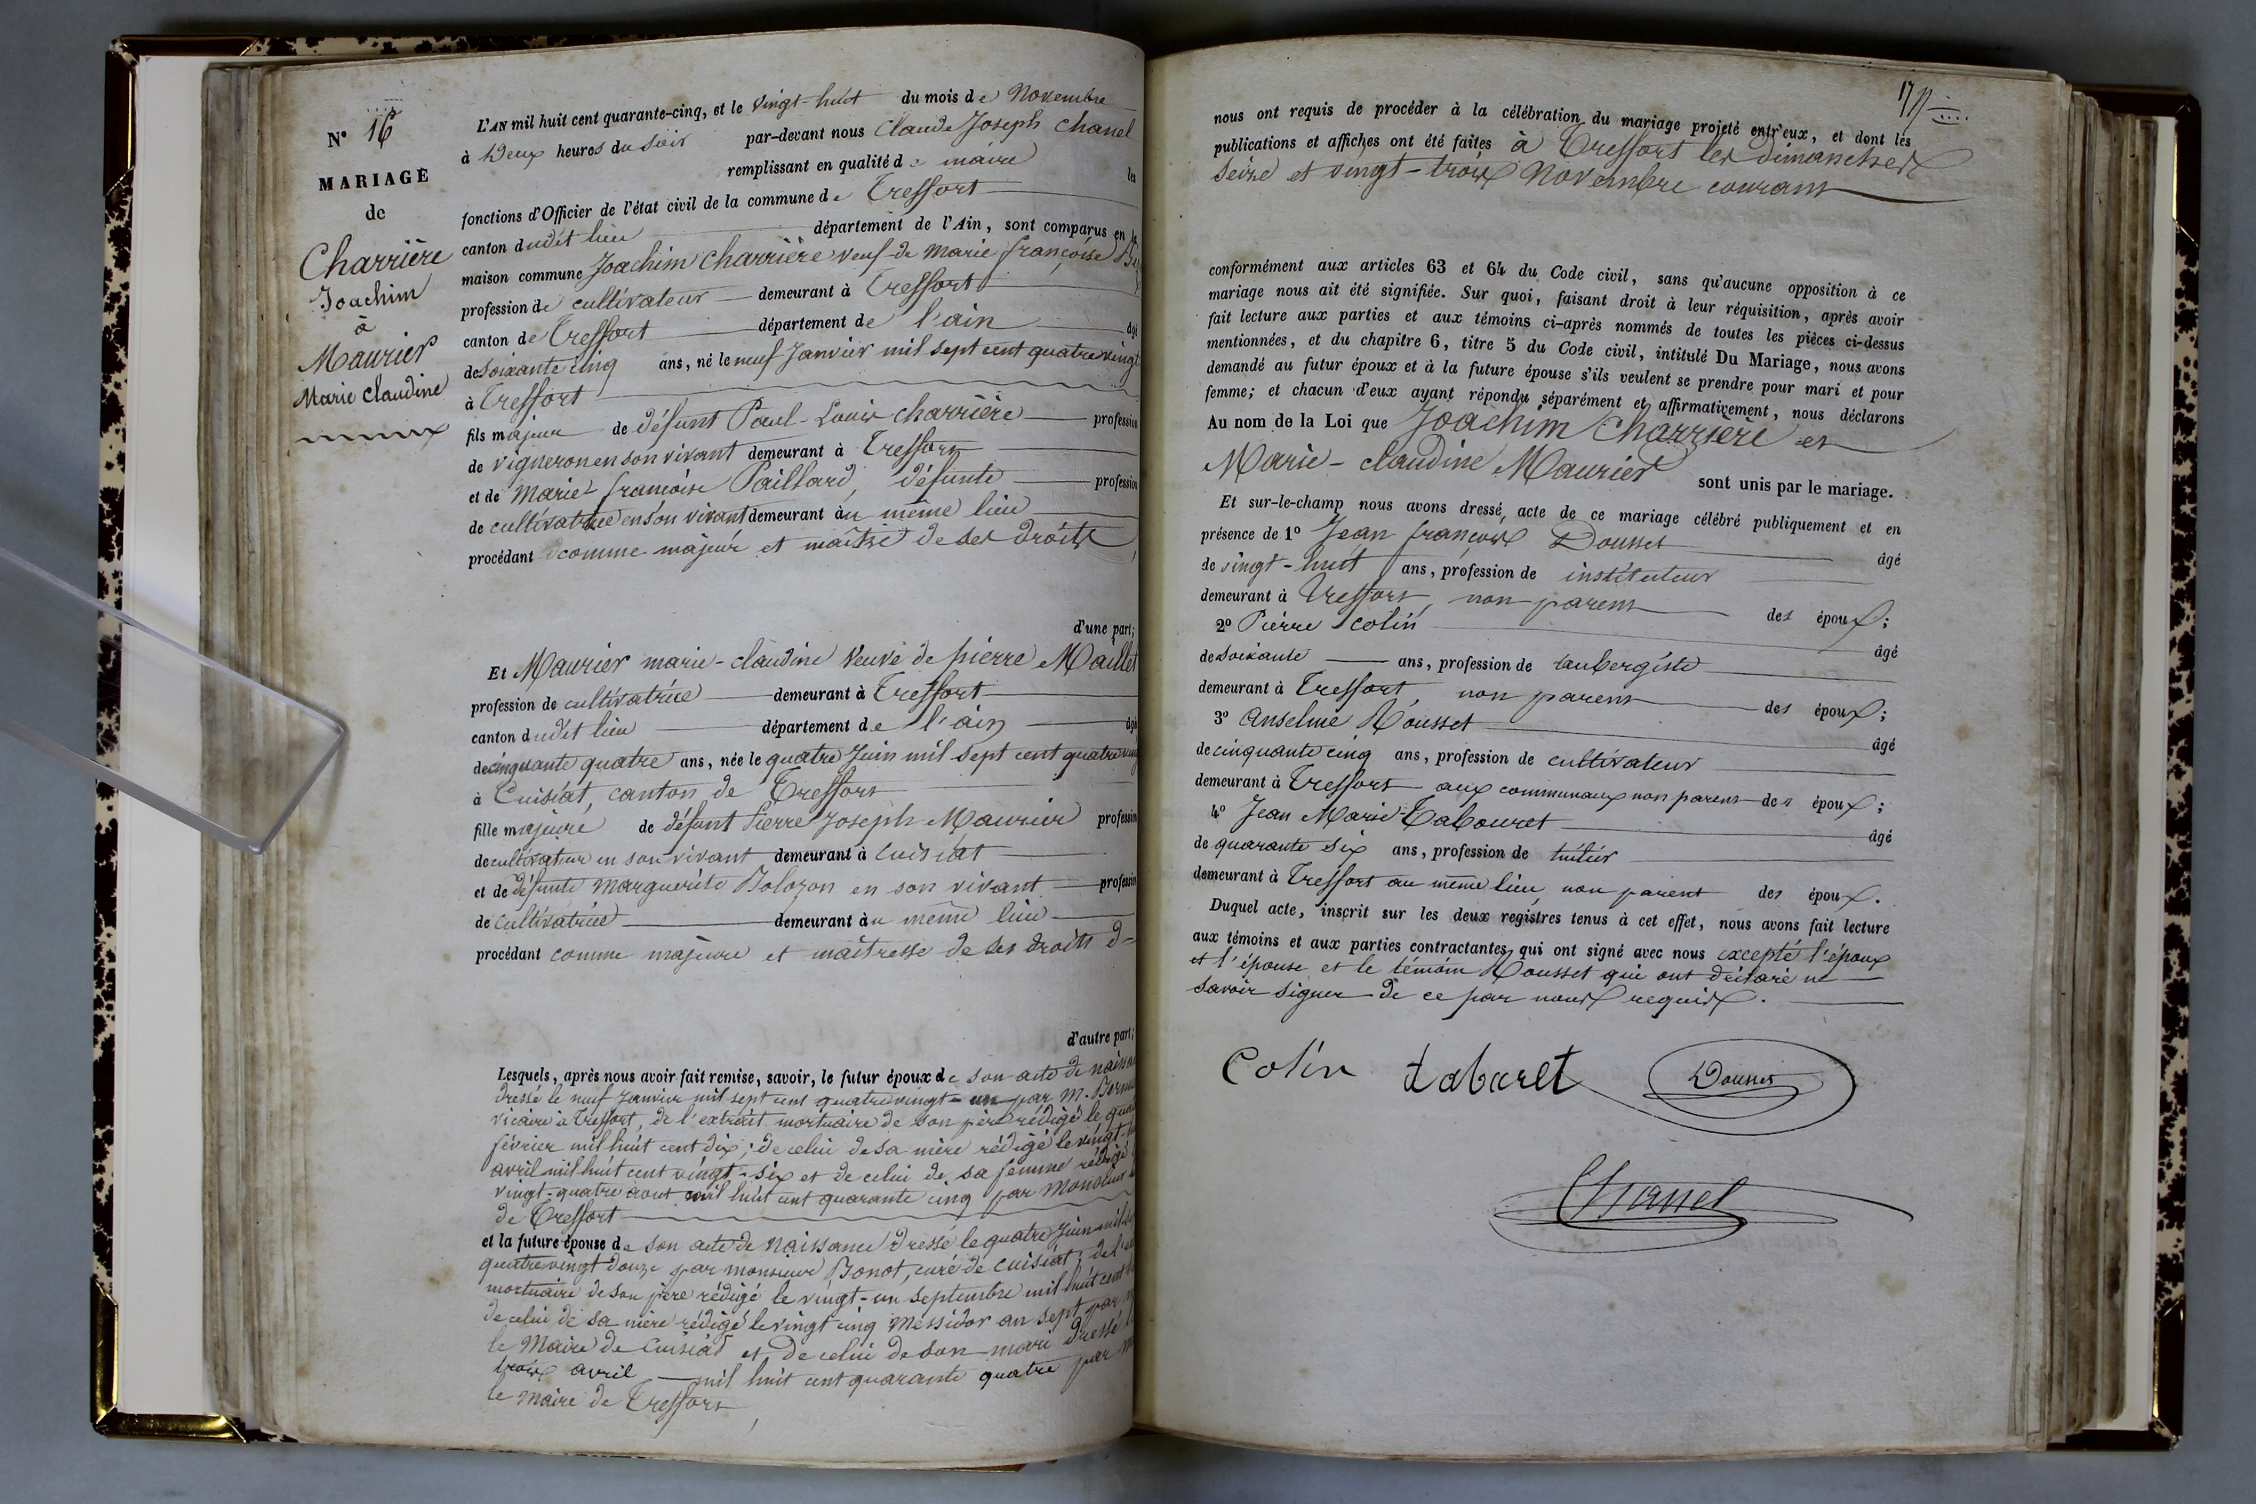 N° 16
MARIAGE
de
Charrière
Joachim
à
Maurier
Marie Claudine
L'AN mil huit cent quarante-cinq, et le vingt-huit du mois de Novembre
à Deux heures du soir par-devant nous Claude Joseph Chanel
remplissant en qualité de maire les
fonctions d'Officier de l'état civil de la commune de Treffort
canton dudit lieu département de l'Ain, sont comparus en la
maison commune Joachim Charrière veuf de Marie françoise
profession de cultivateur demeurant à Treffort
canton de Treffort département de l'ain âgé
de soixante cinq ans, né le neuf Janvier mil sept cent quatre vingt
à Treffort
fils majeur de défunt Paul-Louis Charrière profession
de vigneron en son vivant demeurant à Treffort
et de Marie françoise Paillard, défunte profession
de cultivatrice en son vivant demeurant au même lieu
procédant comme majeur et maître de ses droits
d'une part;
Et Maurier marie-claudine veuve de pierre Maillet
profession de cultivatrice demeurant à Treffort
canton dudit lieu département de l'ain âgé
de cinquante quatre ans, née le quatre Juin mil sept cent quatre ving
à Cuisiat, canton de Treffort
fille majeure de défunt Pierre Joseph Maurier profession
de cultivateur en son vivant demeurant à Cuisiat
et de défunte Marguerite Bolozon en son vivant profession
de cultivatrice demeurant au même lieu
procédant comme majeure et maîtresse de ses droits d-
d'autre part;
Lesquels, après nous avoir fait remise, savoir, le futur époux de son acte de naissan
dressé le neuf Janvier mil sept cent quatrevingt-un par M.
vicaire à Treffort, de l'extrait mortuaire de son père rédigé le
février mil huit cent dix; de celui de sa mère rédigé le vingt-
avril mil huit cent vingt-six et de celui de sa femme rédigé
vingt-quatre aout mil huit cent quarante cinq par Monsieur
de Treffort
et la future épouse de son acte de naissance dressé le quatre Juin mil
quatrevingt douze par monsieur Bonot, curé de Cuisiat; de l'
mortuaire de son père rédigé le vingt-un septembre mil huit cent
de celui de sa mère rédigé le vingt cinq Messidor an sept par
le Maire de Cuisiat et de celui de son mari dressé
trois avril mil huit cent quarante quatre par
le maire de Treffort
17
nous ont requis de procéder à la célébration du mariage projeté entr'eux, et dont les
publications et affiches ont été faites à Treffort les dimanches
seize et vingt-trois Novembre courant
conformément aux articles 63 et 64 du Code civil, sans qu'aucune opposition à ce
mariage nous ait été signifiée. Sur quoi, faisant droit à leur réquisition, après avoir
fait lecture aux parties et aux témoins ci-après nommés de toutes les pièces ci-dessus
mentionnées, et du chapitre 6, titre 5 du Code civil, intitulé Du Mariage, nous avons
demandé au futur époux et à la future épouse s'ils veulent se prendre pour mari et pour
femme; et chacun d'eux ayant répondu séparément et affirmativement, nous déclarons
Au nom de la Loi que Joachim Charrière et
Marie-claudine Maurier sont unis par le mariage.
Et sur-le-champ nous avons dressé acte de ce mariage célébré publiquement et en
présence de 1° Jean françois Dousset âgé
de vingt-huit ans, profession de instituteur
demeurant à Treffort, non parent des époux;
2° Pierre Colin âgé
de soixante ans, profession de aubergiste
demeurant à Treffort, non parent des époux;
3° Anselme Rousset âgé
de cinquante cinq ans, profession de cultivateur
demeurant à Treffort aux communaux non parent des époux;
4° Jean Marie Tabouret âgé
de quarante six ans, profession de
demeurant à Treffort au même lieu non parent des époux.
Duquel acte, inscrit sur les deux registres tenus à cet effet, nous avons fait lecture
aux témoins et aux parties contractantes qui ont signé avec nous excepté l'époux
et l'épouse et le témoin Rousset qui ont déclaré ne
savoir signer de ce par nous requis.
Colin tabaret Dousset
Chanel